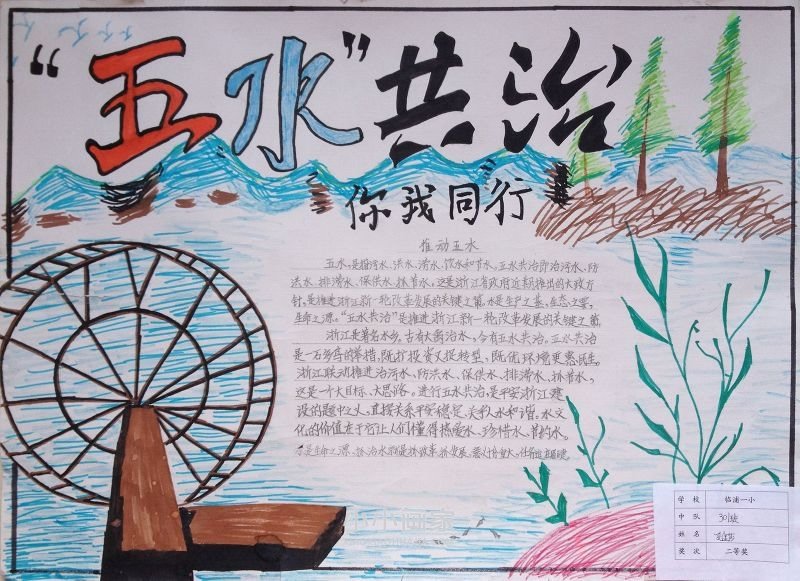 “五水”共治
你我同行
推动五水
五水，是指污水、洪水、涝水、饮水和节水。五水共治即治污水、防
洪水、排涝水、保供水、抓节水。这是浙江省政府近期推出的大政方
针，是推进浙江新一轮改革发展的关键之策。水是生产之基，生态之要，
生命之源。“五水共治”是推进浙江新一轮改革发展的关键之策
浙江是著名水乡，古有大禹治水，今有五水共治，五水共治
是一石多鸟的举措，既扩投资又促转型，既优环境更惠民生。
浙江联动推进治污水、防洪水、保供水、排涝水、抓节水，
这是个大目标、大思路。进行五水共治，是平安浙江建
设的题中之义，直接关系平安稳定，关系人水和谐。水文
化的价值在于它让人们懂得热爱水、珍惜水、节约水。
是生命之源、抓治水就是抓改革、抓发展、意义
学校 临浦一小
中队 301班
姓名
奖次 二等奖